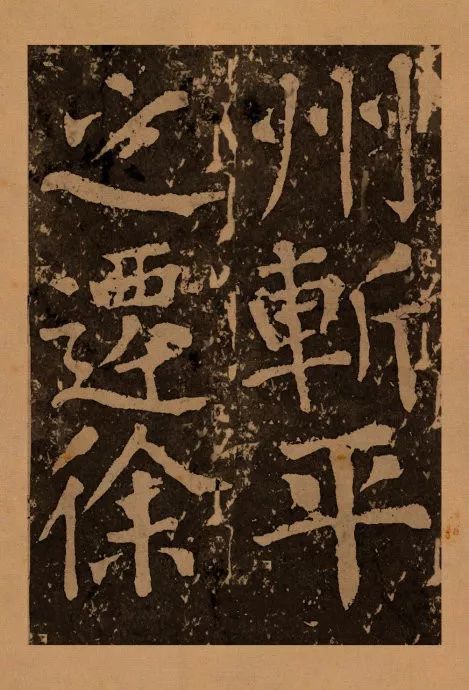 州斬平
之遷徐